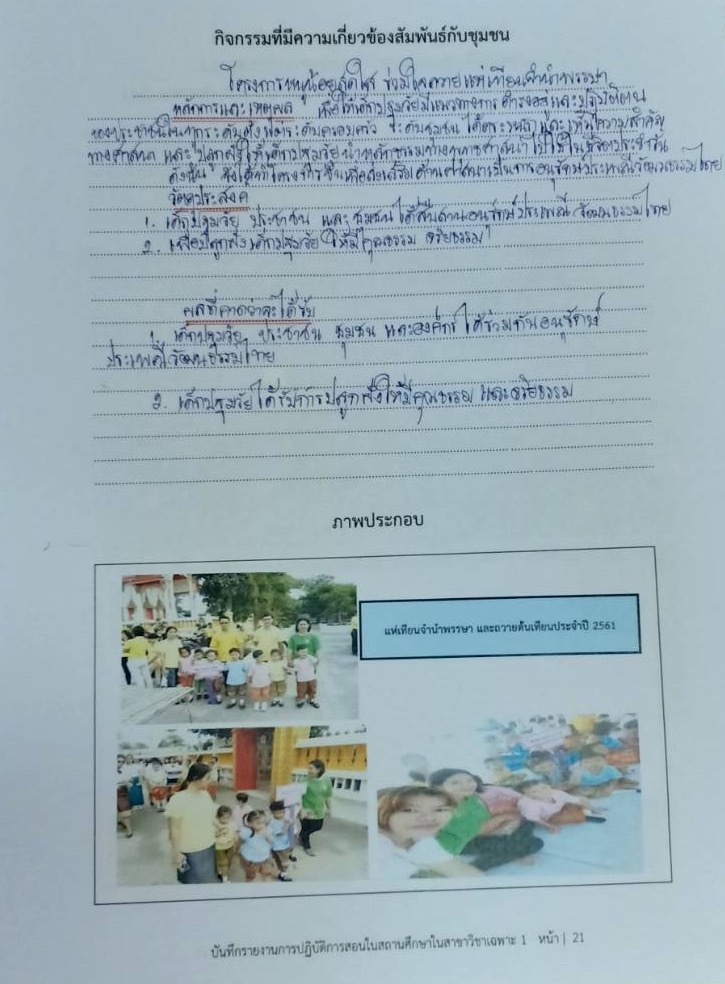 กิจกรรมที่มีความเกี่ยวข้องสัมพันธ์กับชุมชน
โครงการหนูน้อย ร่วมใจถวายแห่เทียนจำนำพรรษา
หลักการและเหตุผล เพื่อให้เด็กปฐมวัยมีแนวทางการดำรงอยู่และปฏิบัติตน
ของประชาชนในทุกระดับตั้งแต่ระดับครอบครัว ระดับชุมชน ได้ตระหนัก และเห็นความสำคัญ
ทางศาสนา และปลูกฝังให้เด็กปฐมวัยนำหลักธรรมทางพุทธศาสนาไปใช้ในชีวิตประจำวัน
ดังนั้น จึงได้ทำโครงการขึ้นเพื่อส่งเสริมด้านศาสนาเป็นการอนุรักษ์ประเพณีวัฒนธรรมไทย
วัตถุประสงค์
1. เด็กปฐมวัย ประชาชน และชุมชนได้สืบสานอนุรักษ์ประเพณี วัฒนธรรมไทย
2. เพื่อปลูกฝังเด็กปฐมวัย ให้มีคุณธรรม จริยธรรม
ผลที่คาดว่าจะได้รับ
1. เด็กปฐมวัย ประชาชน ชุมชน และองค์กร ได้ร่วมกันอนุรักษ์
ประเพณีวัฒนธรรมไทย
2. เด็กปฐมวัยได้รับการปลูกฝังให้มีคุณธรรม และจริยธรรม
ภาพประกอบ
แห่เทียนจำนำพรรษา และถวายต้นเทียนประจำปี 2561
บันทึกรายงานการปฏิบัติการสอนในสถานศึกษาในสาขาวิชาเฉพาะ 1 หน้า | 21